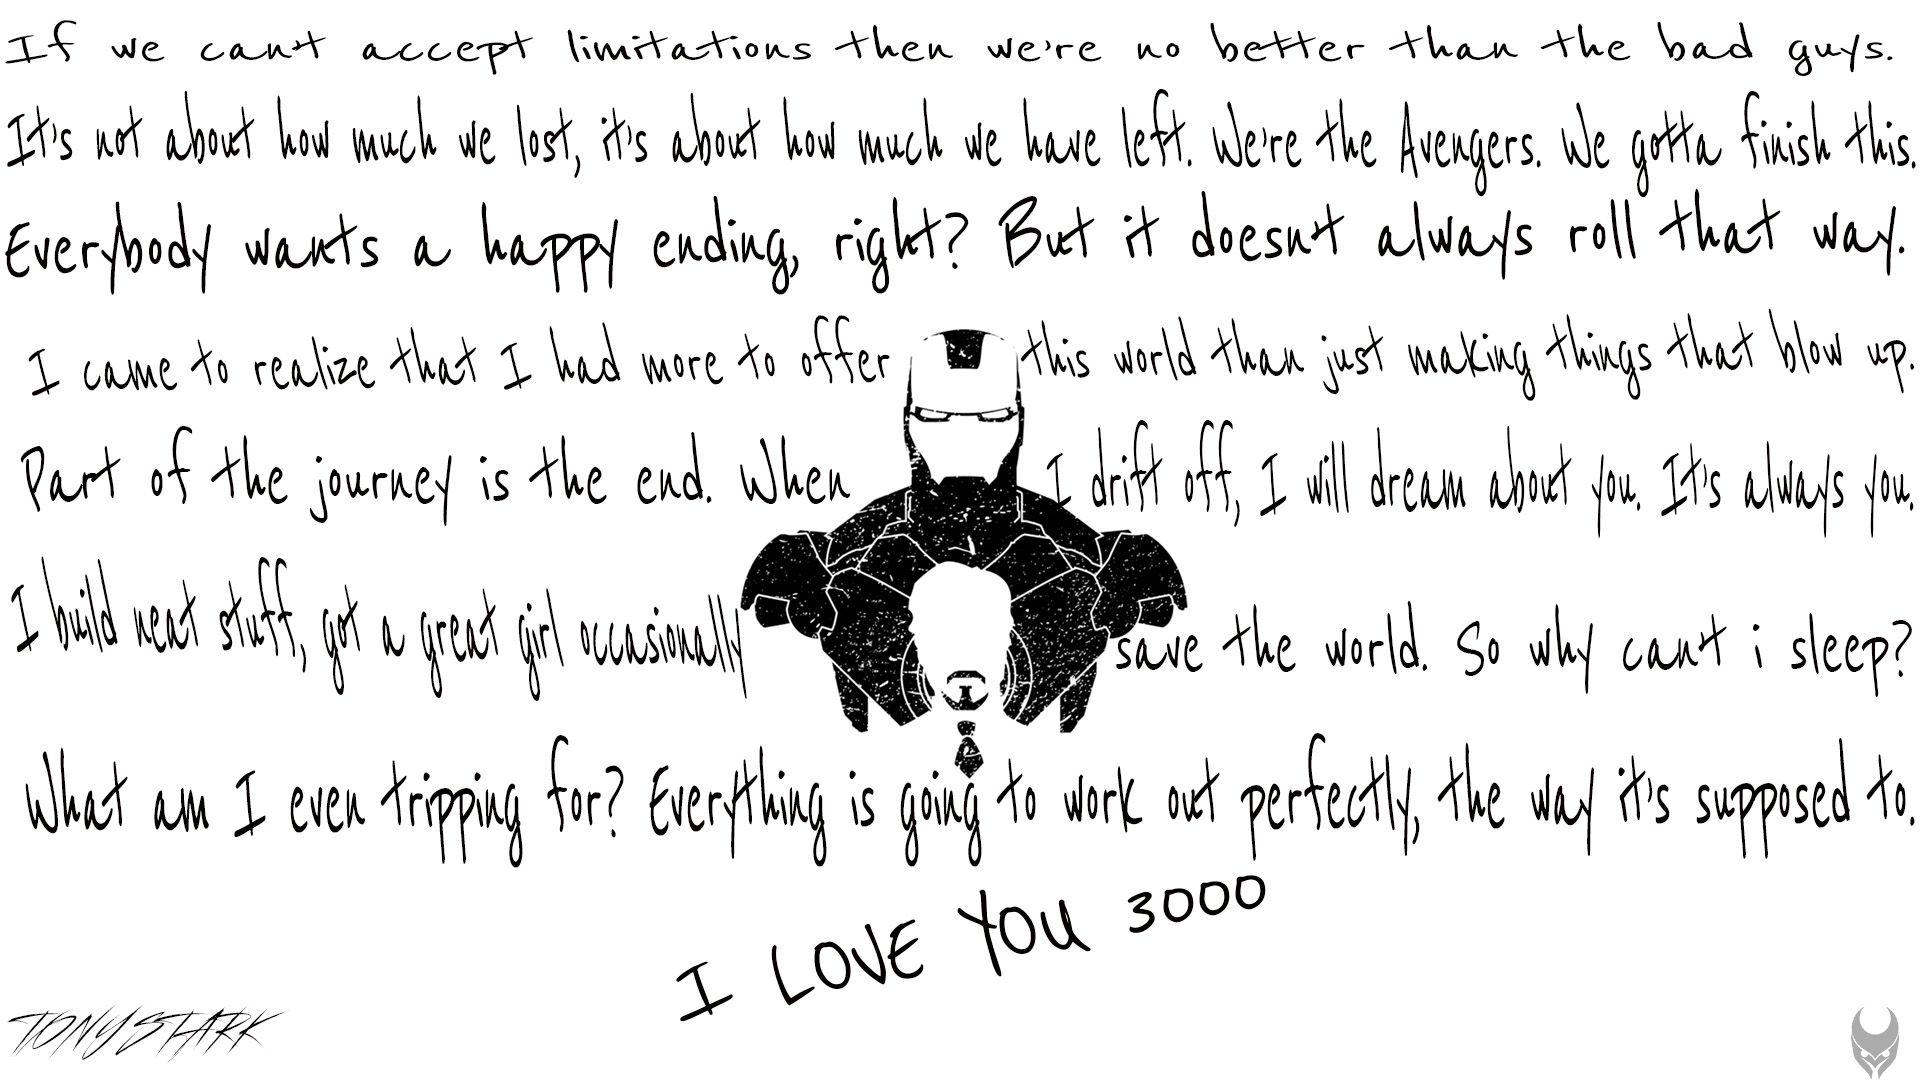 If we can't accept limitations then we're no better than the bad guys.
It's not about how much we lost, it's about how much we have left. We're the Avengers. We gotta finish this.
Everybody wants a happy ending, right? But it doesn't always roll that way.
I came to realize that I had more to offer this world than just making things that blow up.
Part of the journey is the end. When I drift off, I will dream about you. It's always you.
I build neat stuff, got a great girl occasionally save the world. So why can't i sleep?
What am I even tripping for? Everything is going to work out perfectly, the way it's supposed to.
I LOVE YOU 3000
TONY STARK